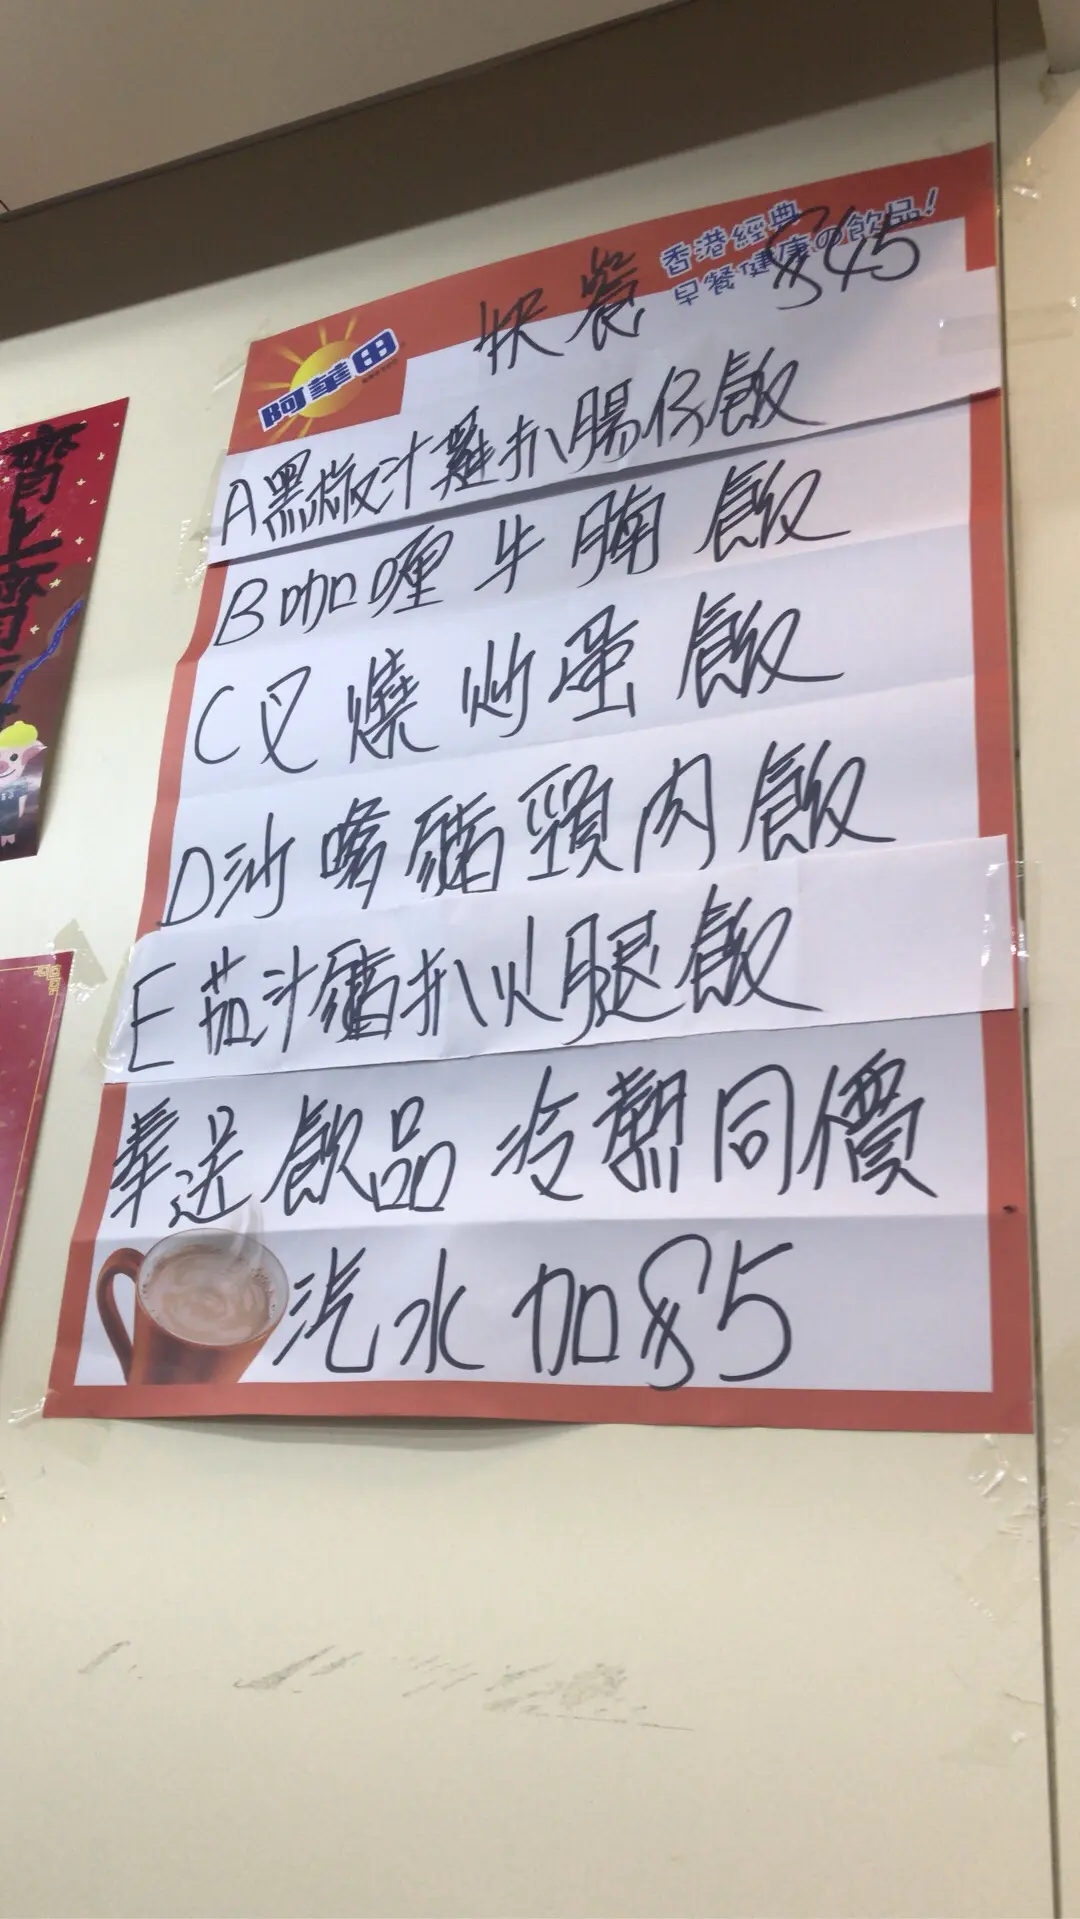 阿華田
香港經典
早餐健康の飲品!
快餐 $45
A黑椒汁雞扒腸仔飯
B咖喱牛腩飯
C叉燒炒蛋飯
D沙嗲豬頸肉飯
E茄汁豬扒火腿飯
奉送飲品 冷熱同價
汽水加$5